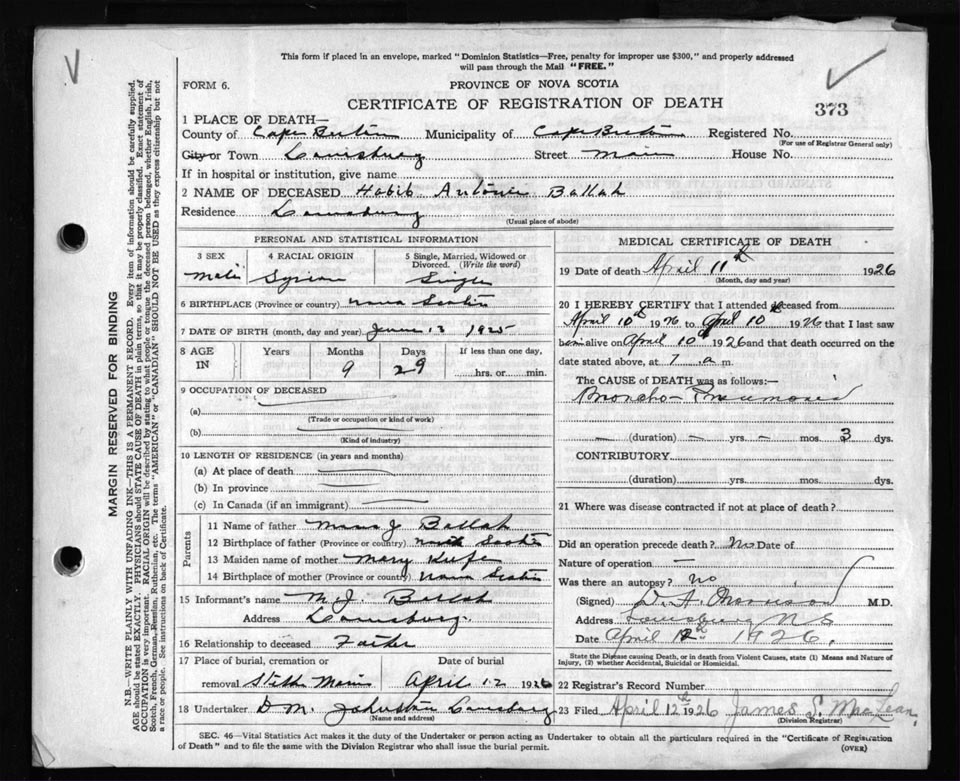 This form if placed in an envelope, marked "Dominion Statistics—Free, penalty for improper use $300," and properly addressed
will pass through the Mail "FREE."
FORM 6.
PROVINCE OF NOVA SCOTIA
CERTIFICATE OF REGISTRATION OF DEATH
373
1 PLACE OF DEATH—
County of Cape Breton Municipality of Cape Breton Registered No.
(For use of Registrar General only)
City or Town Louisburg Street Main House No.
If in hospital or institution, give name
2 NAME OF DECEASED Habib Antonie Ballah
Residence Louisburg
(Usual place of abode)
PERSONAL AND STATISTICAL INFORMATION
3 SEX 4 RACIAL ORIGIN 5 Single, Married, Widowed or Divorced. (Write the word)
Male Syrian Single
6 BIRTHPLACE (Province or country) Nova Scotia
7 DATE OF BIRTH (month, day and year) June 13 1925
8 AGE IN Years Months Days If less than one day,
9 29 hrs. or min.
9 OCCUPATION OF DECEASED
(a)
(Trade or occupation or kind of work)
(b)
(Kind of industry)
10 LENGTH OF RESIDENCE (in years and months)
(a) At place of death
(b) In province
(c) In Canada (if an immigrant)
Parents
11 Name of father J Ballah
12 Birthplace of father (Province or country) Nova Scotia
13 Maiden name of mother Mary Keefe
14 Birthplace of mother (Province or country) Nova Scotia
15 Informant's name M. J. Ballah
Address Louisburg.
16 Relationship to deceased Father
17 Place of burial, cremation or Date of burial
removal Stella Maris April 12 1926
18 Undertaker D. M. Johnston Louisburg
(Name and address)
MEDICAL CERTIFICATE OF DEATH
19 Date of death April 11th 1926
(Month, day and year)
20 I HEREBY CERTIFY that I attended deceased from
April 10th 1926 to April 10th 1926 that I last saw
him alive on April 10th 1926 and that death occurred on the
date stated above, at 7 a m.
The CAUSE of DEATH was as follows:—
Broncho-Pneumonia
— (duration) — yrs. — mos. 3 dys.
CONTRIBUTORY
(duration) yrs. mos. dys.
21 Where was disease contracted if not at place of death?
Did an operation precede death? No Date of
Nature of operation —
Was there an autopsy? no
(Signed) D. A. Morrison M.D.
Address Louisburg N S
Date April 12th 1926.
State the Disease causing Death, or in death from Violent Causes, state (1) Means and Nature of
Injury, (2) whether Accidental, Suicidal or Homicidal.
22 Registrar's Record Number
23 Filed April 12th 1926 James S. MacLean,
(Division Registrar)
SEC. 46—Vital Statistics Act makes it the duty of the Undertaker or person acting as Undertaker to obtain all the particulars required in the "Certificate of Registration
of Death" and to file the same with the Division Registrar who shall issue the burial permit.
(OVER)
MARGIN RESERVED FOR BINDING
N.B.—WRITE PLAINLY WITH UNFADING INK—THIS IS A PERMANENT RECORD. Every item of information should be carefully supplied.
AGE should be stated EXACTLY. PHYSICIANS should STATE CAUSE OF DEATH in plain terms, so that it may be properly classified. Exact statement of
OCCUPATION is very important. RACIAL ORIGIN will be described by stating to what people or tongue the deceased person belonged, whether English, Irish,
Scotch, French, German, Russian, Ruthenian, etc. The terms "AMERICAN" or "CANADIAN" SHOULD NOT BE USED as they express citizenship but not
a race or people. See instructions on back of Certificate.